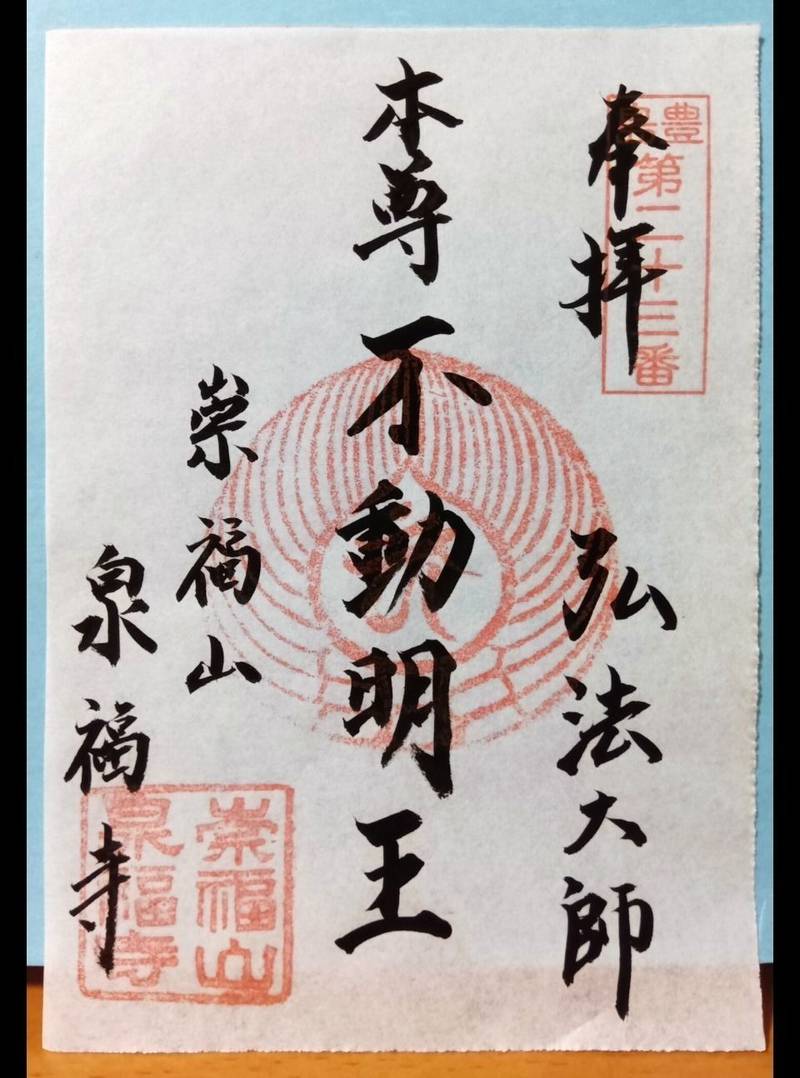 豊
第二十三番
奉拝 弘法大師
本尊 不動明王
崇福山
泉福寺
崇福山
泉福寺